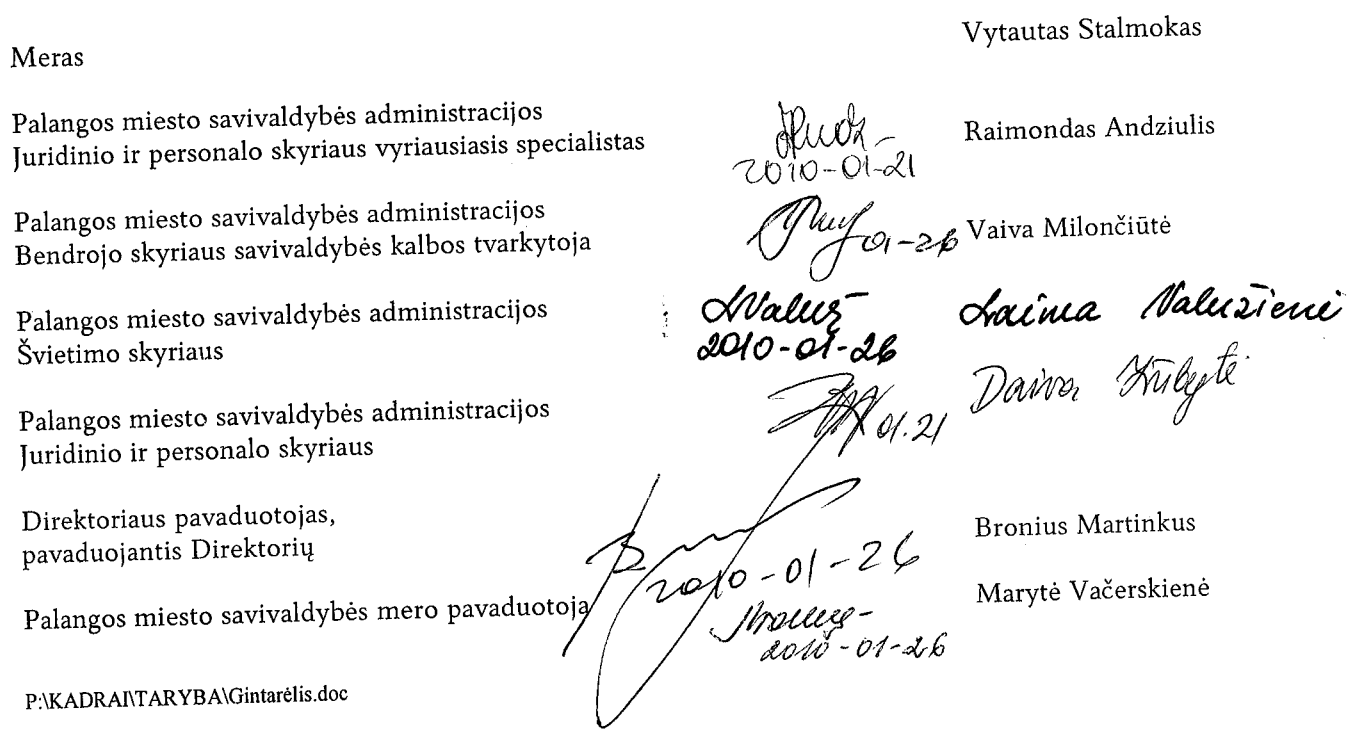 Meras
Vytautas Stalmokas
Palangos miesto savivaldybės administracijos
Juridinio ir personalo skyriaus vyriausiasis specialistas
2010-01-21
Raimondas Andziulis
Palangos miesto savivaldybės administracijos
Bendrojo skyriaus savivaldybės kalbos tvarkytoja
01-26
Vaiva Milončiūtė
Palangos miesto savivaldybės administracijos
Švietimo skyriaus
2010-01-26
Laima Valužienė
Palangos miesto savivaldybės administracijos
Juridinio ir personalo skyriaus
01.21
Daiva
Direktoriaus pavaduotojas,
pavaduojantis Direktorių
2010-01-26
Bronius Martinkus
Palangos miesto savivaldybės mero pavaduotoja
2010-01-26
Marytė Vačerskienė
P:\KADRAI\TARYBA\Gintarėlis.doc